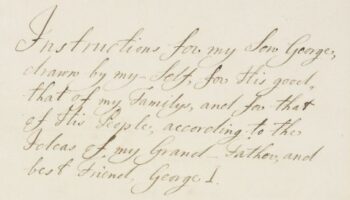 Instructions for my Son George,
drawn by my-Self, for His good,
that of my Familys, and for that
of His People, according to the
Ideas of my Grand-Father, and
best Friend, George I.